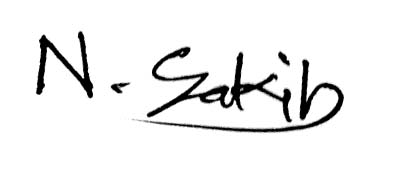 N. Sakib